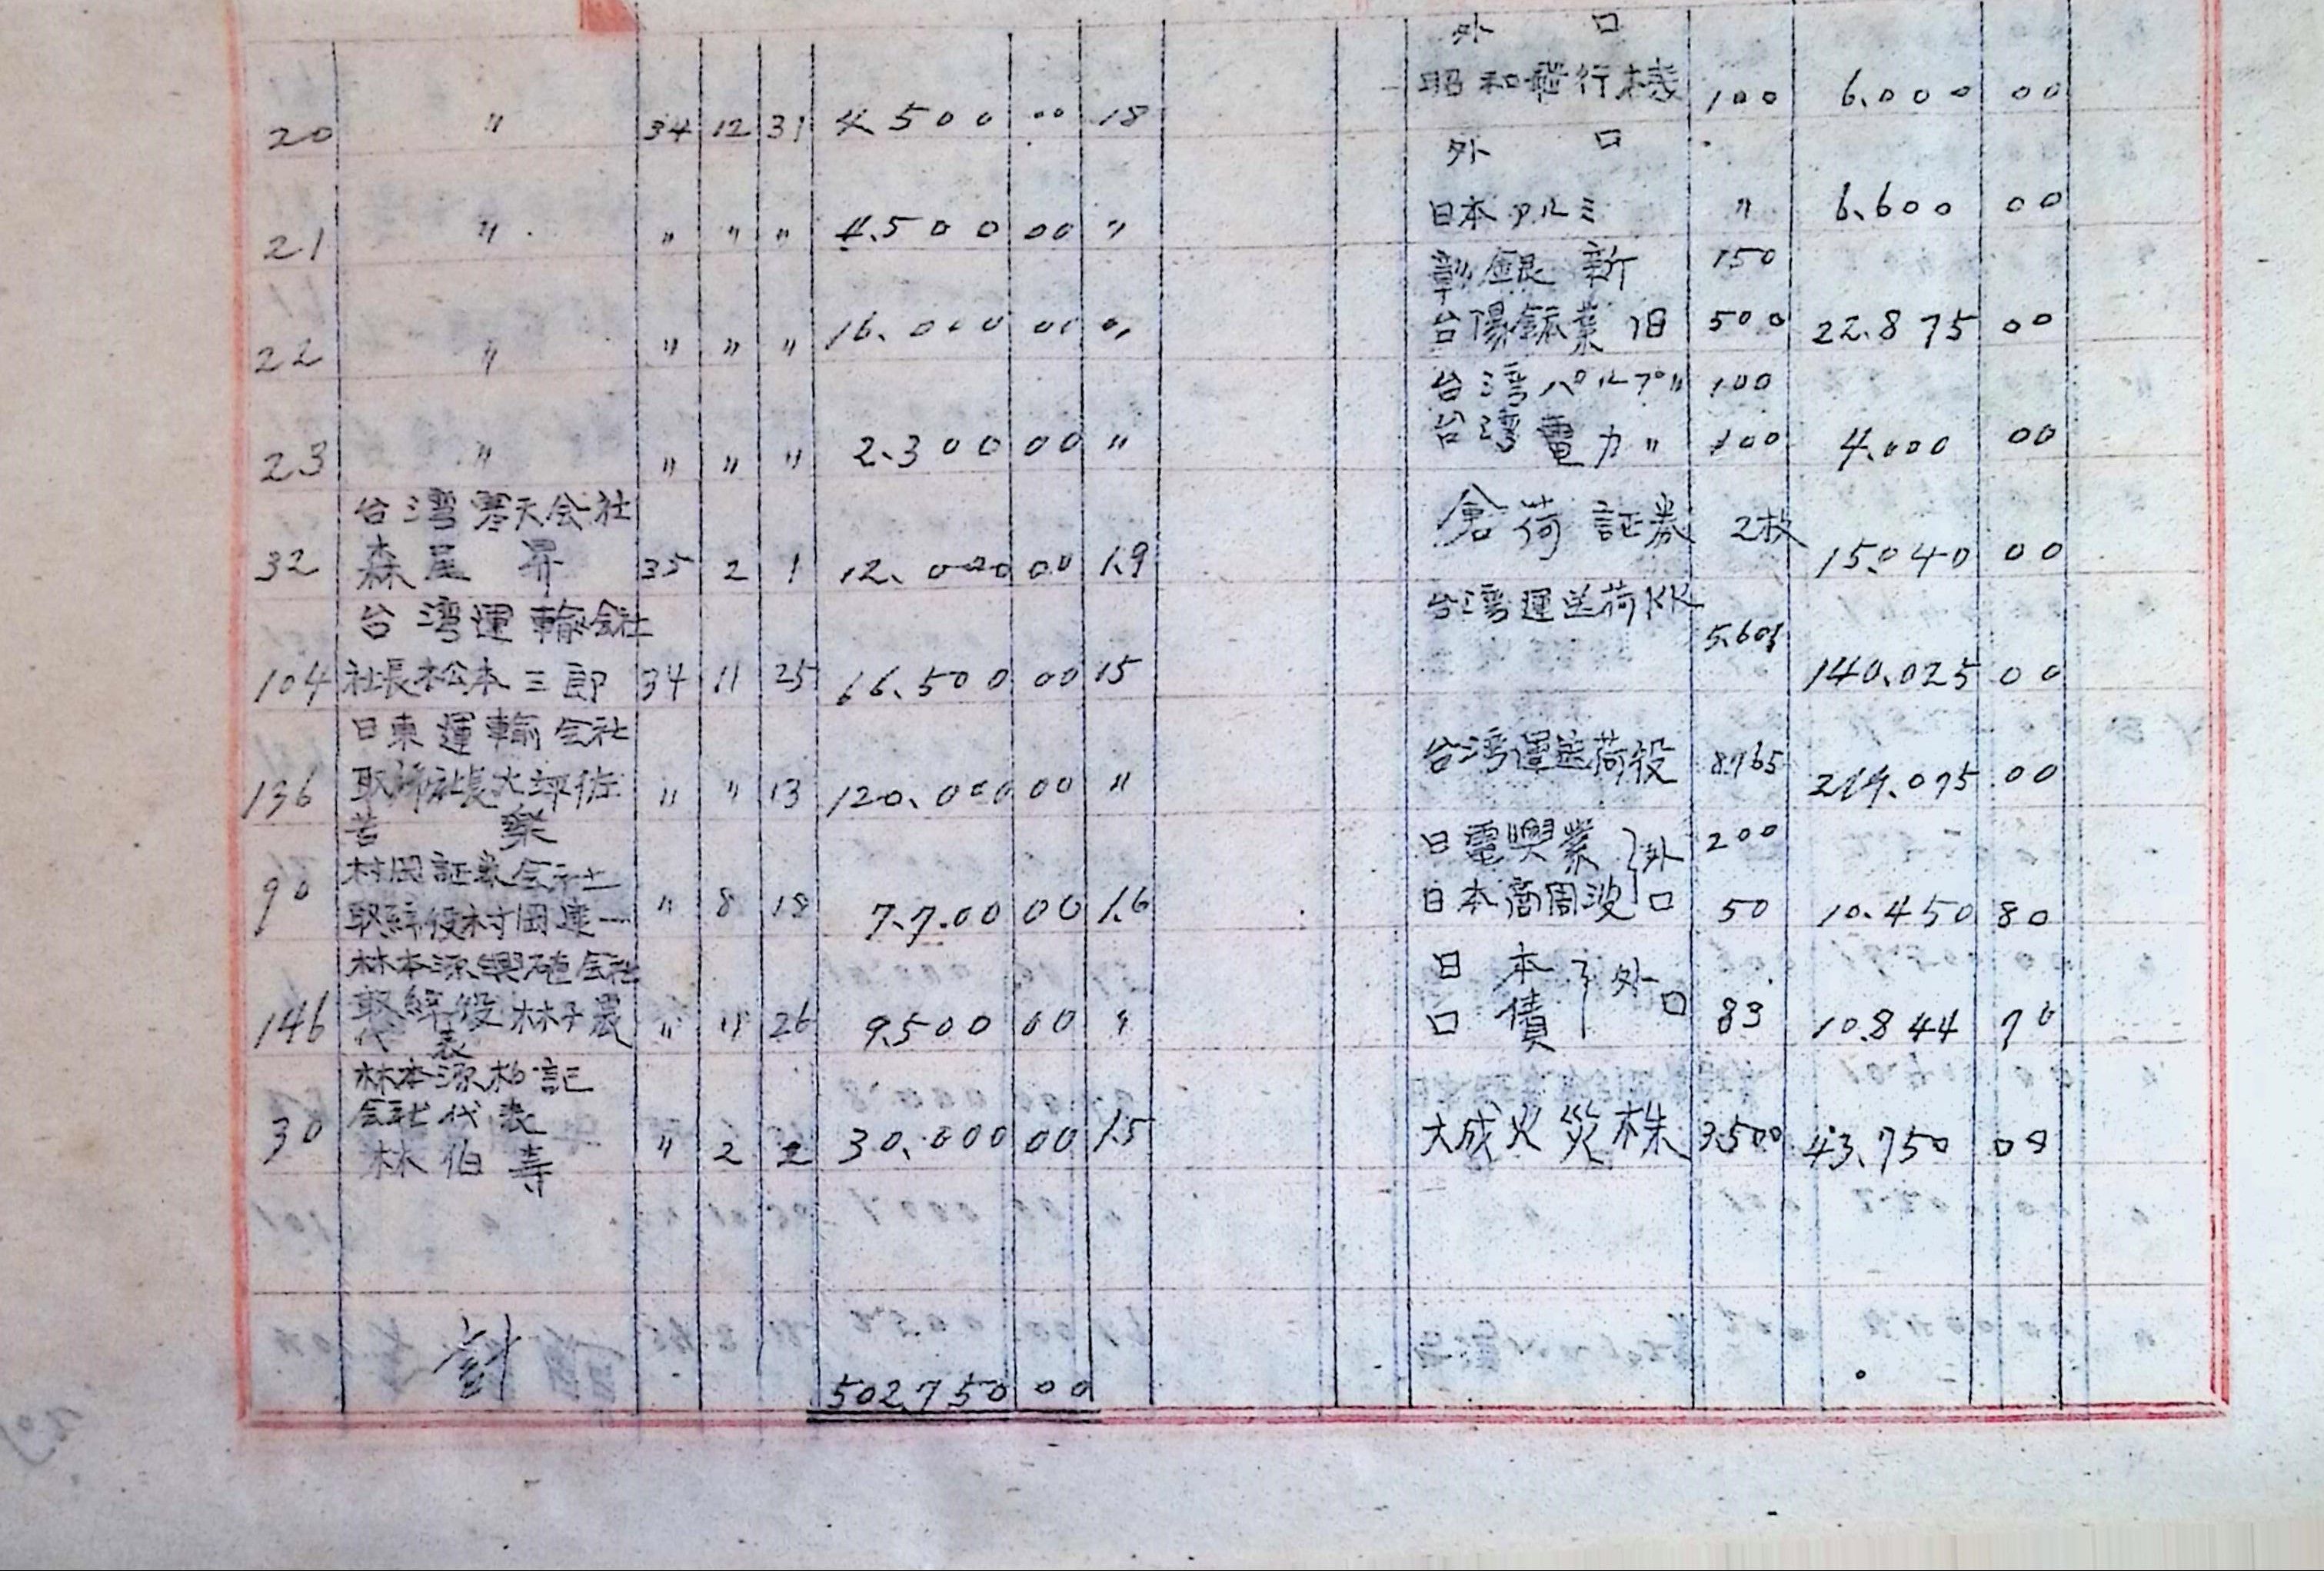 外 口
昭和飛行機 100 6.000 00
20 〃 34 12 31 4500 00 18
外 口
日本アルミ 〃 6.600 00
21 〃 〃 〃 〃 4.500 00 〃
彰銀 新 150
台陽鉱業 旧 500 22.875 00
22 〃 〃 〃 〃 16.000 00 〃
台湾パルプ〃 100
台湾電力〃 100 4.000 00
23 〃 〃 〃 〃 2.300 00 〃
台湾寒天会社
倉荷証券 2枚 15.040 00
32 森尾 昇 35 2 1 12.000 00 1.9
台湾運輸会社
台湾運送荷KK
104 社長松本三郎 34 11 25 16.500 00 15
140.025 00
日東運輸会社
台湾運送荷役 8.765 219.075 00
136 〃 〃 13 120.000 00 〃
日電興業 外 200
村岡証券会社
90 取締役村岡 一 〃 8 18 7.7.00 00 1.6
日本高周波 口 50 10.450 80
林本源興殖会社
日本 外
146 取締役 〃 11 26 9.500 00 〃
代表
口債 口 83 10.844 70
林本源柏記
会社代表
30 林伯寿 〃 2 2 30.000 00 1.5
大成火災株 3.500 43.750 00
計
502.750 00